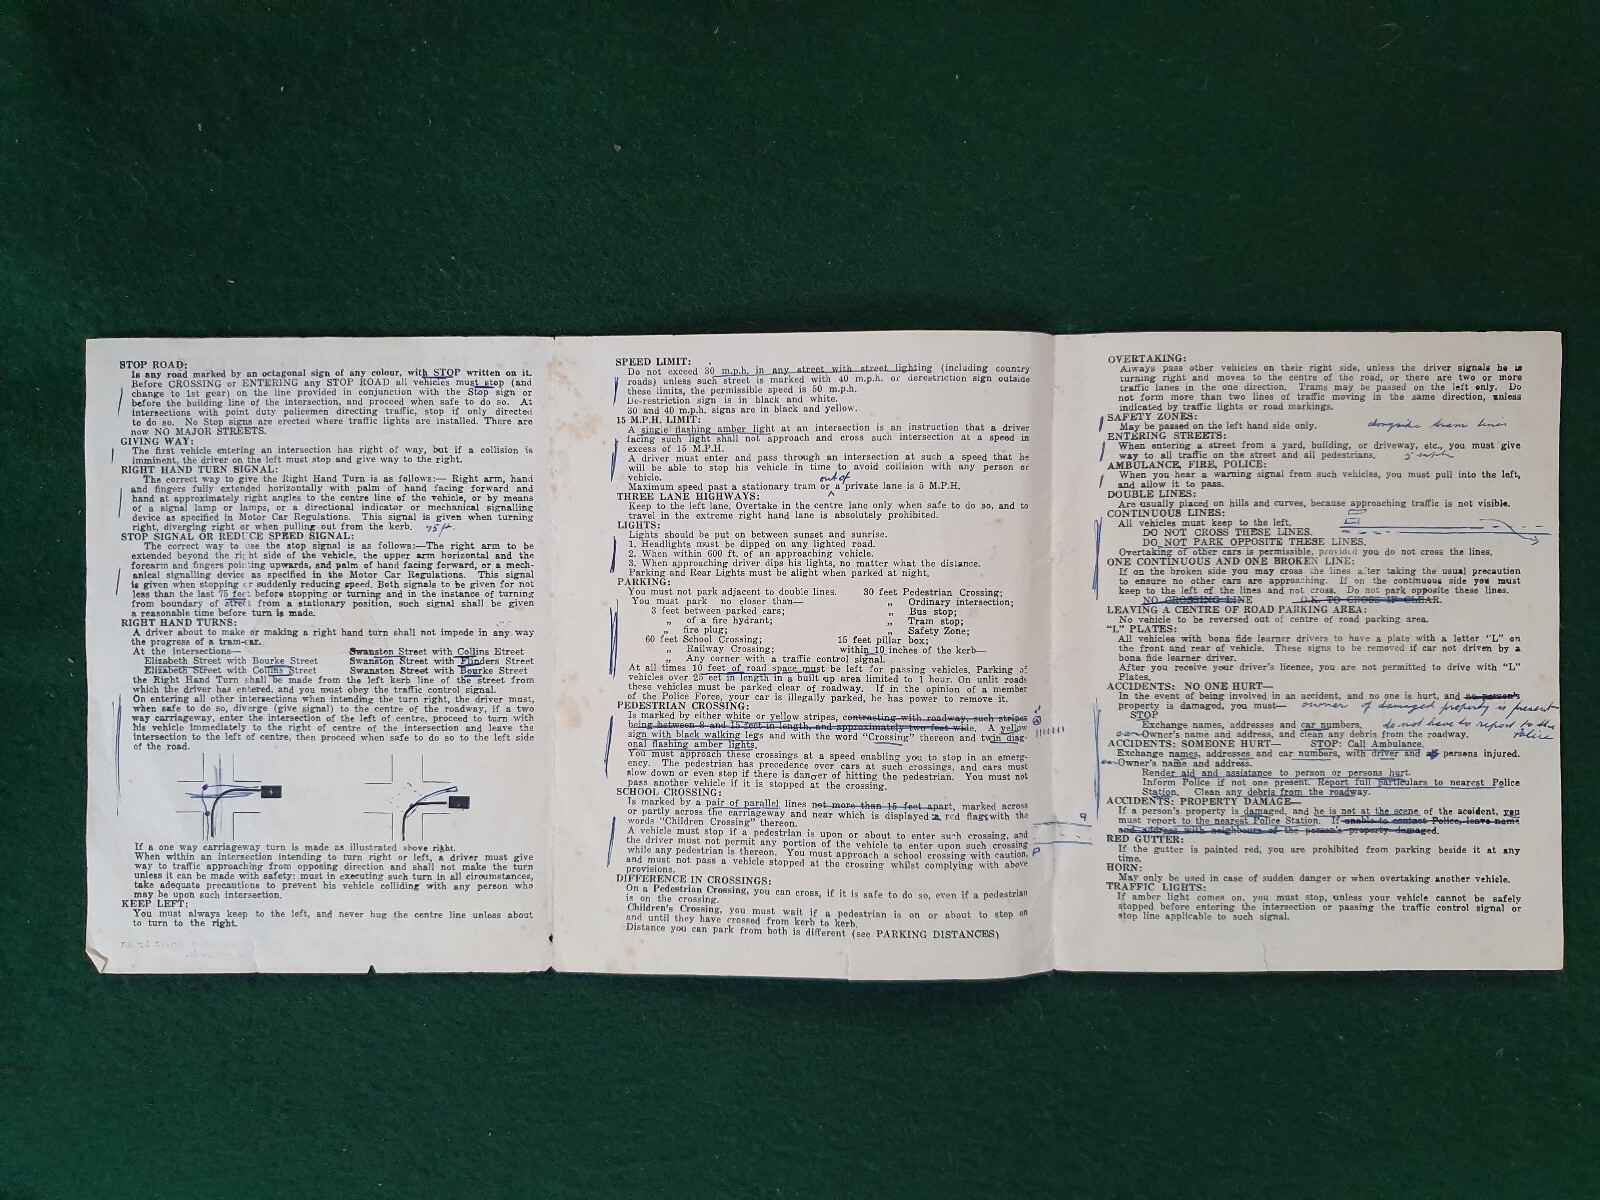 STOP ROAD:
Is any road marked by an octagonal sign of any colour, with STOP written on it.
Before CROSSING or ENTERING any STOP ROAD all vehicles must stop (and
change to 1st gear) on the line provided in conjunction with the Stop sign or
before the building line of the intersection, and proceed when safe to do so. At
intersections with point duty policemen directing traffic, stop if only directed
to do so. No Stop signs are erected where traffic lights are installed. There are
now NO MAJOR STREETS.
GIVING WAY:
The first vehicle entering an intersection has right of way, but if a collision is
imminent, the driver on the left must stop and give way to the right.
RIGHT HAND TURN SIGNAL:
The correct way to give the Right Hand Turn is as follows:— Right arm, hand
and fingers fully extended horizontally with palm of hand facing forward and
hand at approximately right angles to the centre line of the vehicle, or by means
of a signal lamp or lamps, or a directional indicator or mechanical signalling
device as specified in Motor Car Regulations. This signal is given when turning
right, diverging right or when pulling out from the kerb. 75 ft.
STOP SIGNAL OR REDUCE SPEED SIGNAL:
The correct way to use the stop signal is as follows:—The right arm to be
extended beyond the right side of the vehicle, the upper arm horizontal and the
forearm and fingers pointing upwards, and palm of hand facing forward, or a mech-
anical signalling device as specified in the Motor Car Regulations. This signal
is given when stopping or suddenly reducing speed. Both signals to be given for not
less than the last 75 feet before stopping or turning and in the instance of turning
from boundary of street from a stationary position, such signal shall be given
a reasonable time before turn is made.
RIGHT HAND TURNS:
A driver about to make or making a right hand turn shall not impede in any way
the progress of a tram-car.
At the intersections— Swanston Street with Collins Street
Elizabeth Street with Bourke Street Swanston Street with Flinders Street
Elizabeth Street with Collins Street Swanston Street with Bourke Street
the Right Hand Turn shall be made from the left kerb line of the street from
which the driver has entered, and you must obey the traffic control signal.
On entering all other intersections when intending the turn right, the driver must,
when safe to do so, diverge (give signal) to the centre of the roadway, if a two
way carriageway, enter the intersection of the left of centre, proceed to turn with
his vehicle immediately to the right of centre of the intersection and leave the
intersection to the left of centre, then proceed when safe to do so to the left side
of the road.
If a one way carriageway turn is made as illustrated above right.
When within an intersection intending to turn right or left, a driver must give
way to traffic approaching from opposing direction and shall not make the turn
unless it can be made with safety: must in executing such turn in all circumstances,
take adequate precautions to prevent his vehicle colliding with any person who
may be upon such intersection.
KEEP LEFT:
You must always keep to the left, and never hug the centre line unless about
to turn to the right.
SPEED LIMIT:
Do not exceed 30 m.p.h. in any street with street lighting (including country
roads) unless such street is marked with 40 m.p.h. or derestriction sign outside
these limits, the permissible speed is 50 m.p.h.
De-restriction sign is in black and white.
30 and 40 m.p.h. signs are in black and yellow.
15 M.P.H. LIMIT:
A single flashing amber light at an intersection is an instruction that a driver
facing such light shall not approach and cross such intersection at a speed in
excess of 15 M.P.H.
A driver must enter and pass through an intersection at such a speed that he
will be able to stop his vehicle in time to avoid collision with any person or
vehicle. out of
Maximum speed past a stationary tram or a private lane is 5 M.P.H.
THREE LANE HIGHWAYS:
Keep to the left, Overtake in the centre lane only when safe to do so, and to
travel in the extreme right hand lane is absolutely prohibited.
LIGHTS:
Lights should be put on between sunset and sunrise.
1. Headlights must be dipped on any lighted road.
2. When within 600 ft. of an approaching vehicle.
3. When approaching driver dips his lights, no matter what the distance.
Parking and Rear Lights must be alight when parked at night.
PARKING:
You must not park adjacent to double lines. 30 feet Pedestrian Crossing;
You must park no closer than— „ Ordinary intersection;
3 feet between parked cars; „ Bus stop;
„ of a fire hydrant; „ Tram stop;
„ fire plug; „ Safety Zone;
60 feet School Crossing; 15 feet pillar box;
„ Railway Crossing; within 10 inches of the kerb—
„ Any corner with a traffic control signal.
At all times 10 feet of road space must be left for passing vehicles, Parking of
vehicles over 25 feet in length in a built up area limited to 1 hour. On unlit roads
these vehicles must be parked clear of roadway. If in the opinion of a member
of the Police Force, your car is illegally parked, he has power to remove it.
PEDESTRIAN CROSSING:
Is marked by either white or yellow stripes, contrasting with roadway, such stripes
being between 8 and 15 feet in length, and approximately two feet wide. A yellow
sign with black walking legs and with the word "Crossing" thereon and twin diag-
onal flashing amber lights.
You must approach these crossings at a speed enabling you to stop in an emerg-
ency. The pedestrian has precedence over cars at such crossings, and cars must
slow down or even stop if there is danger of hitting the pedestrian. You must not
pass another vehicle if it is stopped at the crossing.
SCHOOL CROSSING:
Is marked by a pair of parallel lines not more than 15 feet apart, marked across
or partly across the carriageway and near which is displayed a red flags with the
words "Children Crossing" thereon.
A vehicle must stop if a pedestrian is upon or about to enter such crossing, and
the driver must not permit any portion of the vehicle to enter upon such crossing
while any pedestrian is thereon. You must approach a school crossing with caution,
and must not pass a vehicle stopped at the crossing whilst complying with above
provisions.
DIFFERENCE IN CROSSINGS:
On a Pedestrian Crossing, you can cross, if it is safe to do so, even if a pedestrian
is on the crossing.
Children's Crossing, you must wait if a pedestrian is on or about to step on
and until they have crossed from kerb to kerb.
Distance you can park from both is different (see PARKING DISTANCES)
OVERTAKING:
Always pass other vehicles on their right side, unless the driver signals he is
turning right and moves to the centre of the road, or there are two or more
traffic lanes in the one direction. Trams may be passed on the left only. Do
not form more than two lines of traffic moving in the same direction, unless
indicated by traffic lights or road markings.
SAFETY ZONES:
May be passed on the left hand side only. alongside tram lines
ENTERING STREETS:
When entering a street from a yard, building, or driveway, etc., you must give
way to all traffic on the street and all pedestrians.
AMBULANCE, FIRE, POLICE:
When you hear a warning signal from such vehicles, you must pull into the left,
and allow it to pass.
DOUBLE LINES:
Are usually placed on hills and curves, because approaching traffic is not visible.
CONTINUOUS LINES:
All vehicles must keep to the left.
DO NOT CROSS THESE LINES.
DO NOT PARK OPPOSITE THESE LINES.
Overtaking of other cars is permissible, provided you do not cross the lines.
ONE CONTINUOUS AND ONE BROKEN LINE:
If on the broken side you may cross the lines after taking the usual precaution
to ensure no other cars are approaching. If on the continuous side you must
keep to the left of the lines and not cross. Do not park opposite these lines.
NO CROSSING LINE O.K. TO CROSS IF CLEAR.
LEAVING A CENTRE OF ROAD PARKING AREA:
No vehicle to be reversed out of centre of road parking area.
"L" PLATES:
All vehicles with bona fide learner drivers to have a plate with a letter "L" on
the front and rear of vehicle. These signs to be removed if car not driven by a
bona fide learner driver.
After you receive your driver's licence, you are not permitted to drive with "L"
Plates.
ACCIDENTS: NO ONE HURT—
In the event of being involved in an accident, and no one is hurt, and no person's
property is damaged, you must— owner of damaged property is present
STOP
Exchange names, addresses and car numbers, do not have to report to the
Owner's name and address, and clean any debris from the roadway. Police
ACCIDENTS: SOMEONE HURT— STOP: Call Ambulance.
Exchange names, addresses and car numbers, with driver and persons injured.
Owner's name and address.
Render aid and assistance to person or persons hurt.
Inform Police if not one present. Report full particulars to nearest Police
Station. Clean any debris from the roadway.
ACCIDENTS: PROPERTY DAMAGE—
If a person's property is damaged, and he is not at the scene of the accident, you
must report to the nearest Police Station. If unable to contact Police, leave name
and address with neighbours of the person's property damaged.
RED GUTTER:
If the gutter is painted red, you are prohibited from parking beside it at any
time.
HORN:
May only be used in case of sudden danger or when overtaking another vehicle.
TRAFFIC LIGHTS:
If amber light comes on, you must stop, unless your vehicle cannot be safely
stopped before entering the intersection or passing the traffic control signal or
stop line applicable to such signal.